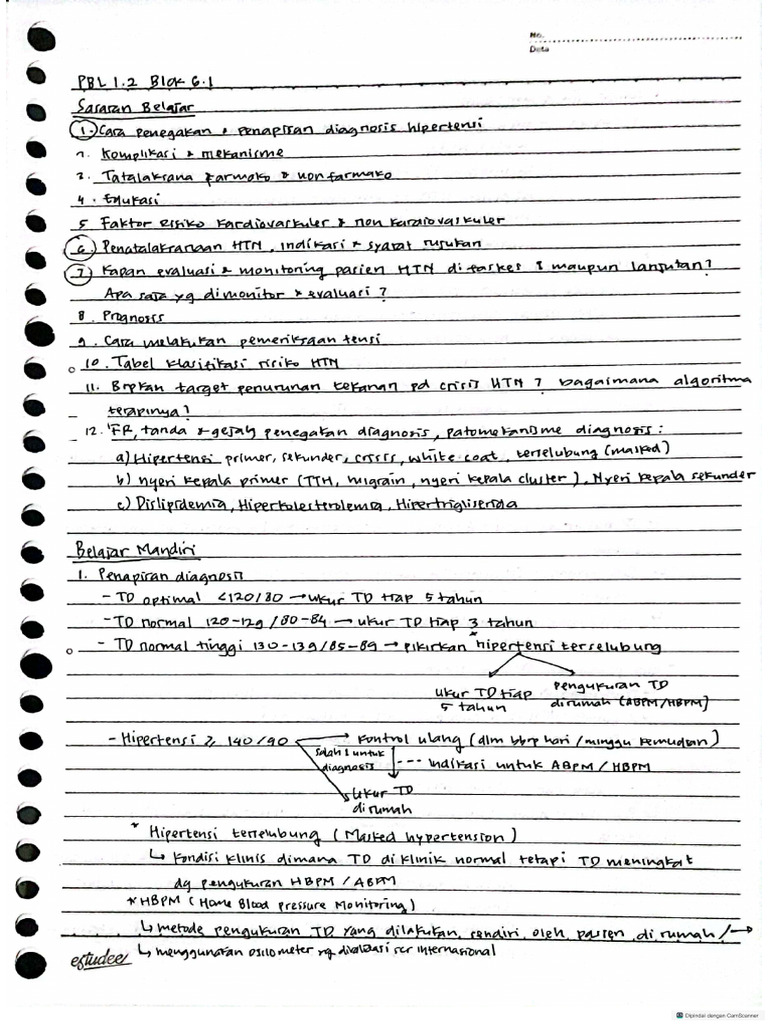 No.
Date
PBL 1.2 Blok 6.1
Sasaran Belajar
1. Cara penegakan & penapisan diagnosis hipertensi
2. Komplikasi & mekanisme
3. Tatalaksana farmako & non farmako
4. Edukasi
5. Faktor risiko kardiovaskuler & non kardiovaskuler
6. Penatalaksanaan HTN, indikasi & syarat rujukan
7. Kapan evaluasi & monitoring pasien HTN di faskes 1 maupun lanjutan?
Apa saja yg dimonitor & evaluasi?
8. Prognosis
9. Cara melakukan pemeriksaan tensi
10. Tabel klasifikasi risiko HTN
11. Brpkah target penurunan tekanan pd crisis HTN? bagaimana algoritma
terapinya?
12. FR, tanda & gejala, penegakan diagnosis, patomekanisme diagnosis:
a) Hipertensi primer, sekunder, crisis, white coat, terselubung (masked)
b) nyeri kepala primer (TTH, migrain, nyeri kepala cluster), Nyeri kepala sekunder
c) Dislipidemia, Hiperkolesterolemia, Hipertrigliserida
Belajar Mandiri
1. Penapisan diagnosis
- TD optimal <120/80 → ukur TD tiap 5 tahun
- TD normal 120-129/80-84 → ukur TD tiap 3 tahun
- TD normal tinggi 130-139/85-89 → pikirkan *hipertensi terselubung
ukur TD tiap 5 tahun
pengukuran TD dirumah (ABPM/HBPM)
- Hipertensi ≥ 140/90 → kontrol ulang (dlm bbrp hari/minggu kemudian)
salah 1 untuk diagnosis
--- indikasi untuk ABPM/HBPM
ukur TD di rumah
* Hipertensi terselubung (Masked hypertension)
↳ kondisi klinis dimana TD di klinik normal tetapi TD meningkat
dg pengukuran HBPM/ABPM
* HBPM (Home Blood Pressure Monitoring)
↳ metode pengukuran TD yang dilakukan sendiri oleh pasien di rumah/→
↳ menggunakan osilometer yg divalidasi scr internasional
estudee
Dipindai dengan CamScanner